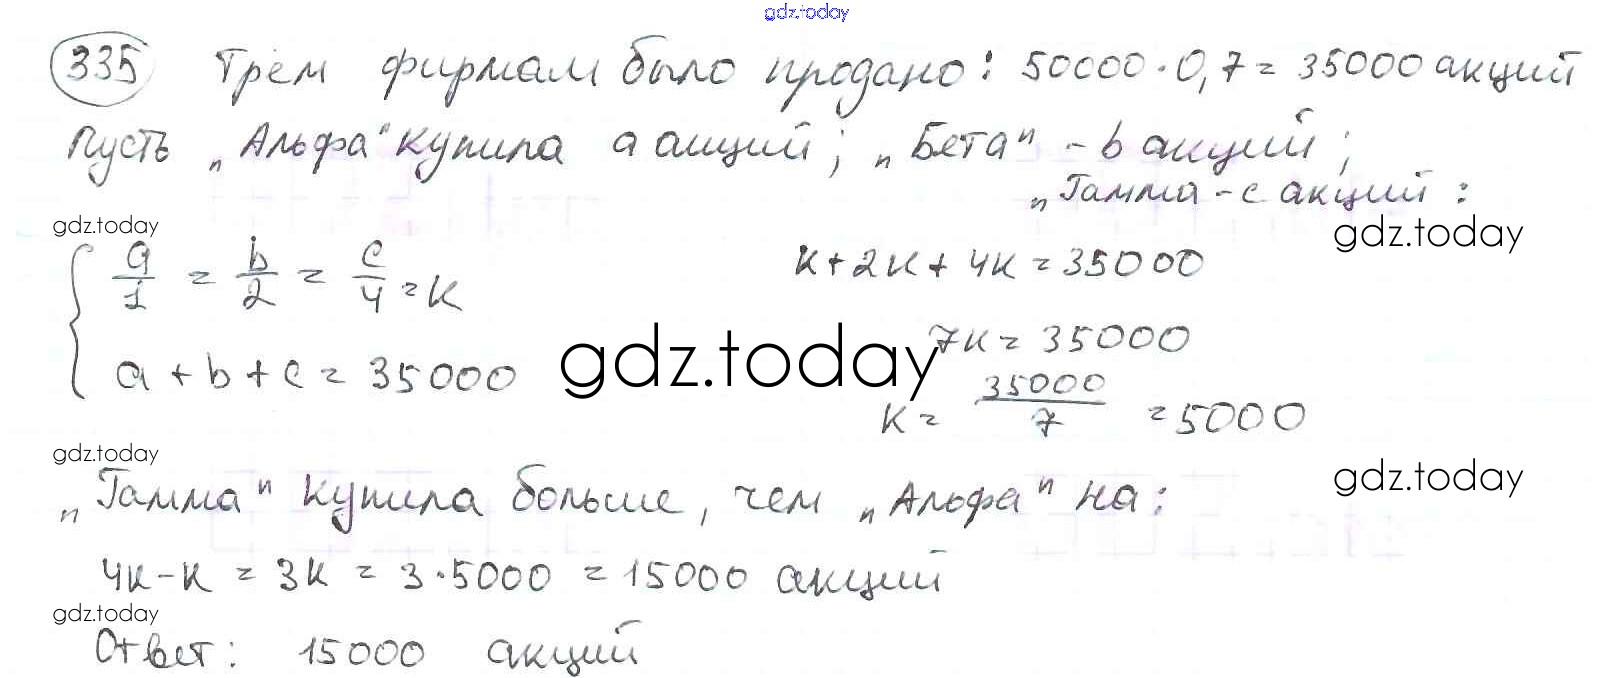 gdz.today
335 Трём фирмам было продано: 50000·0,7=35000 акций
Пусть „Альфа" купила a акций; „Бета" - b акций;
„Гамма - c акций:
gdz.today
gdz.today
a/1 = b/2 = c/4 = k
k+2k+4k=35000
a+b+c=35000
gdz.today
7k=35000
k= 35000/7 =5000
gdz.today
gdz.today
„Гамма" купила больше, чем „Альфа" на:
4k-k = 3k = 3·5000 = 15000 акций
gdz.today
Ответ: 15000 акций